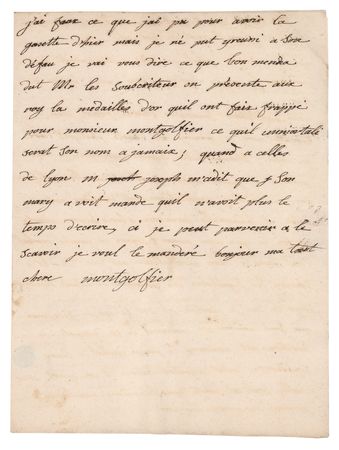 j'ai faxe ce que j'ai pu pour avoir la
gasette d'hier mais je né put y reuni a Son
défau je vai vous dire ce que bon monda
dat Mr les Souscriteur on présente aux
roy la medailles d'or quil ont fait frappé
pour monsieur montgolfier ce quil immortalé
serat Son nom a jamaix; quand a celles
de lyon m joseph m'adit que Son
mary avoit mandé quil n'avoit plus le
temps d'ecrire, ci je peut parvenir a le
scavoir je veul le manderé bonjour ma
chere montgolfier